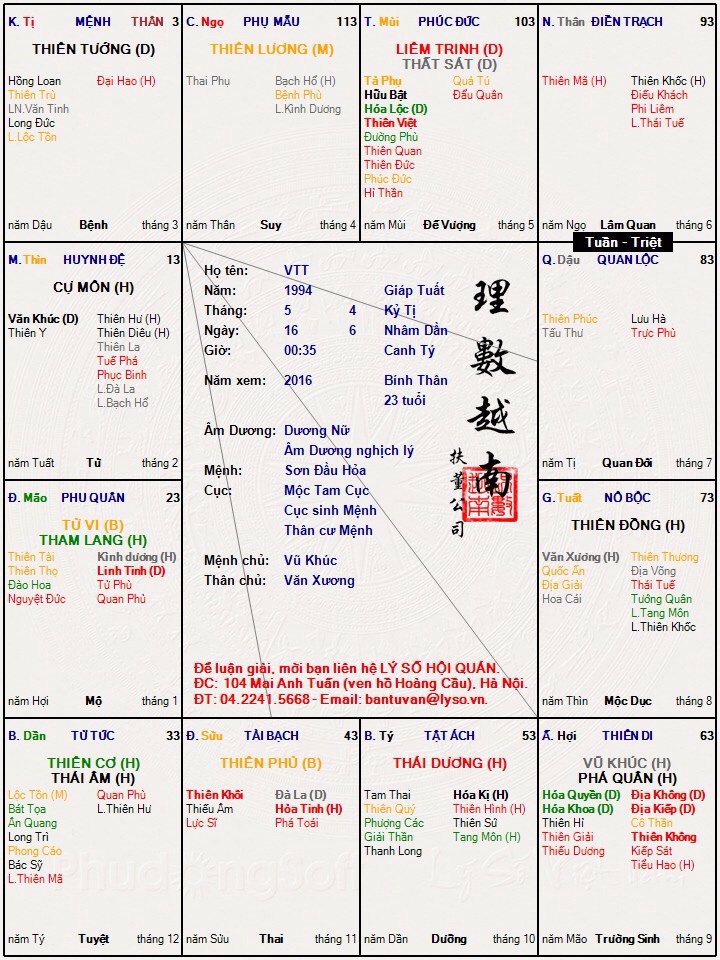 K. Tị MỆNH THÂN 3
THIÊN TƯỚNG (D)
Hồng Loan Đại Hao (H)
Thiên Trù
LN.Văn Tinh
Long Đức
L.Lộc Tồn
năm Dậu Bệnh tháng 3
C. Ngọ PHỤ MẪU 113
THIÊN LƯƠNG (M)
Thai Phụ Bạch Hổ (H)
Bệnh Phù
L.Kình Dương
năm Thân Suy tháng 4
T. Mùi PHÚC ĐỨC 103
LIÊM TRINH (D)
THẤT SÁT (D)
Tả Phụ Quả Tú
Hữu Bật Đẩu Quân
Hóa Lộc (D)
Thiên Việt
Đường Phù
Thiên Quan
Thiên Đức
Phúc Đức
Hỉ Thần
năm Mùi Đế Vượng tháng 5
N. Thân ĐIỀN TRẠCH 93
Thiên Mã (H) Thiên Khốc (H)
Điếu Khách
Phi Liêm
L.Thái Tuế
năm Ngọ Lâm Quan tháng 6
Tuần - Triệt
M. Thìn HUYNH ĐỆ 13
CỰ MÔN (H)
Văn Khúc (D) Thiên Hư (H)
Thiên Y Thiên Diêu (H)
Thiên La
Tuế Phá
Phục Binh
L.Đà La
L.Bạch Hổ
năm Tuất Tử tháng 2
Họ tên: VTT
Năm: 1994 Giáp Tuất
Tháng: 5 4 Kỷ Tị
Ngày: 16 6 Nhâm Dần
Giờ: 00:35 Canh Tý
Năm xem: 2016 Bính Thân
23 tuổi
Âm Dương: Dương Nữ
Âm Dương nghịch lý
Mệnh: Sơn Đầu Hỏa
Cục: Mộc Tam Cục
Cục sinh Mệnh
Thân cư Mệnh
Mệnh chủ: Vũ Khúc
Thân chủ: Văn Xương
理數越南
扶董公司
Để luận giải, mời bạn liên hệ LÝ SỐ HỘI QUÁN.
ĐC: 104 Mai Anh Tuấn (ven hồ Hoàng Cầu), Hà Nội.
ĐT: 04.2241.5668 - Email: bantuvan@lyso.vn.
Q. Dậu QUAN LỘC 83
Thiên Phúc Lưu Hà
Tấu Thư Trực Phù
năm Tị Quan Đới tháng 7
Đ. Mão PHU QUÂN 23
TỬ VI (B)
THAM LANG (H)
Thiên Tài Kình dương (H)
Thiên Thọ Linh Tinh (D)
Đào Hoa Tử Phù
Nguyệt Đức Quan Phủ
năm Hợi Mộ tháng 1
G. Tuất NÔ BỘC 73
THIÊN ĐỒNG (H)
Văn Xương (H) Thiên Thương
Quốc Ấn Địa Võng
Địa Giải Thái Tuế
Hoa Cái Tướng Quân
L.Tang Môn
L.Thiên Khốc
năm Thìn Mộc Dục tháng 8
B. Dần TỬ TỨC 33
THIÊN CƠ (H)
THÁI ÂM (H)
Lộc Tồn (M) Quan Phù
Bát Tọa L.Thiên Hư
Ân Quang
Long Trì
Phong Cáo
Bác Sỹ
L.Thiên Mã
năm Tý Tuyệt tháng 12
Đ. Sửu TÀI BẠCH 43
THIÊN PHỦ (B)
Thiên Khôi Đà La (D)
Thiếu Âm Hỏa Tinh (H)
Lực Sĩ Phá Toái
năm Sửu Thai tháng 11
B. Tý TẬT ÁCH 53
THÁI DƯƠNG (H)
Tam Thai Hóa Kị (H)
Thiên Quý Thiên Hình (H)
Phượng Các Thiên Sứ
Giải Thần Tang Môn (H)
Thanh Long
năm Dần Dưỡng tháng 10
Ấ. Hợi THIÊN DI 63
VŨ KHÚC (H)
PHÁ QUÂN (H)
Hóa Quyền (D) Địa Không (D)
Hóa Khoa (D) Địa Kiếp (D)
Thiên Hỉ Cô Thần
Thiên Giải Thiên Không
Thiếu Dương Kiếp Sát
Tiểu Hao (H)
năm Mão Trường Sinh tháng 9